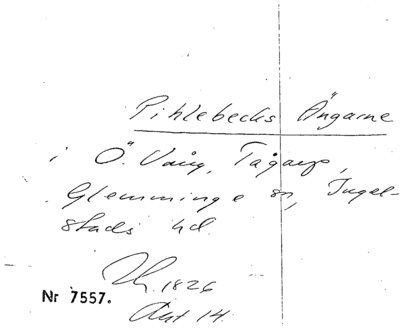 Pihlebecks Ängarne
i Ö. Vång, Tågarp,
Glemminge sn, Ingel-
stads hd.
1826
Nr 7557.
Akt 14.